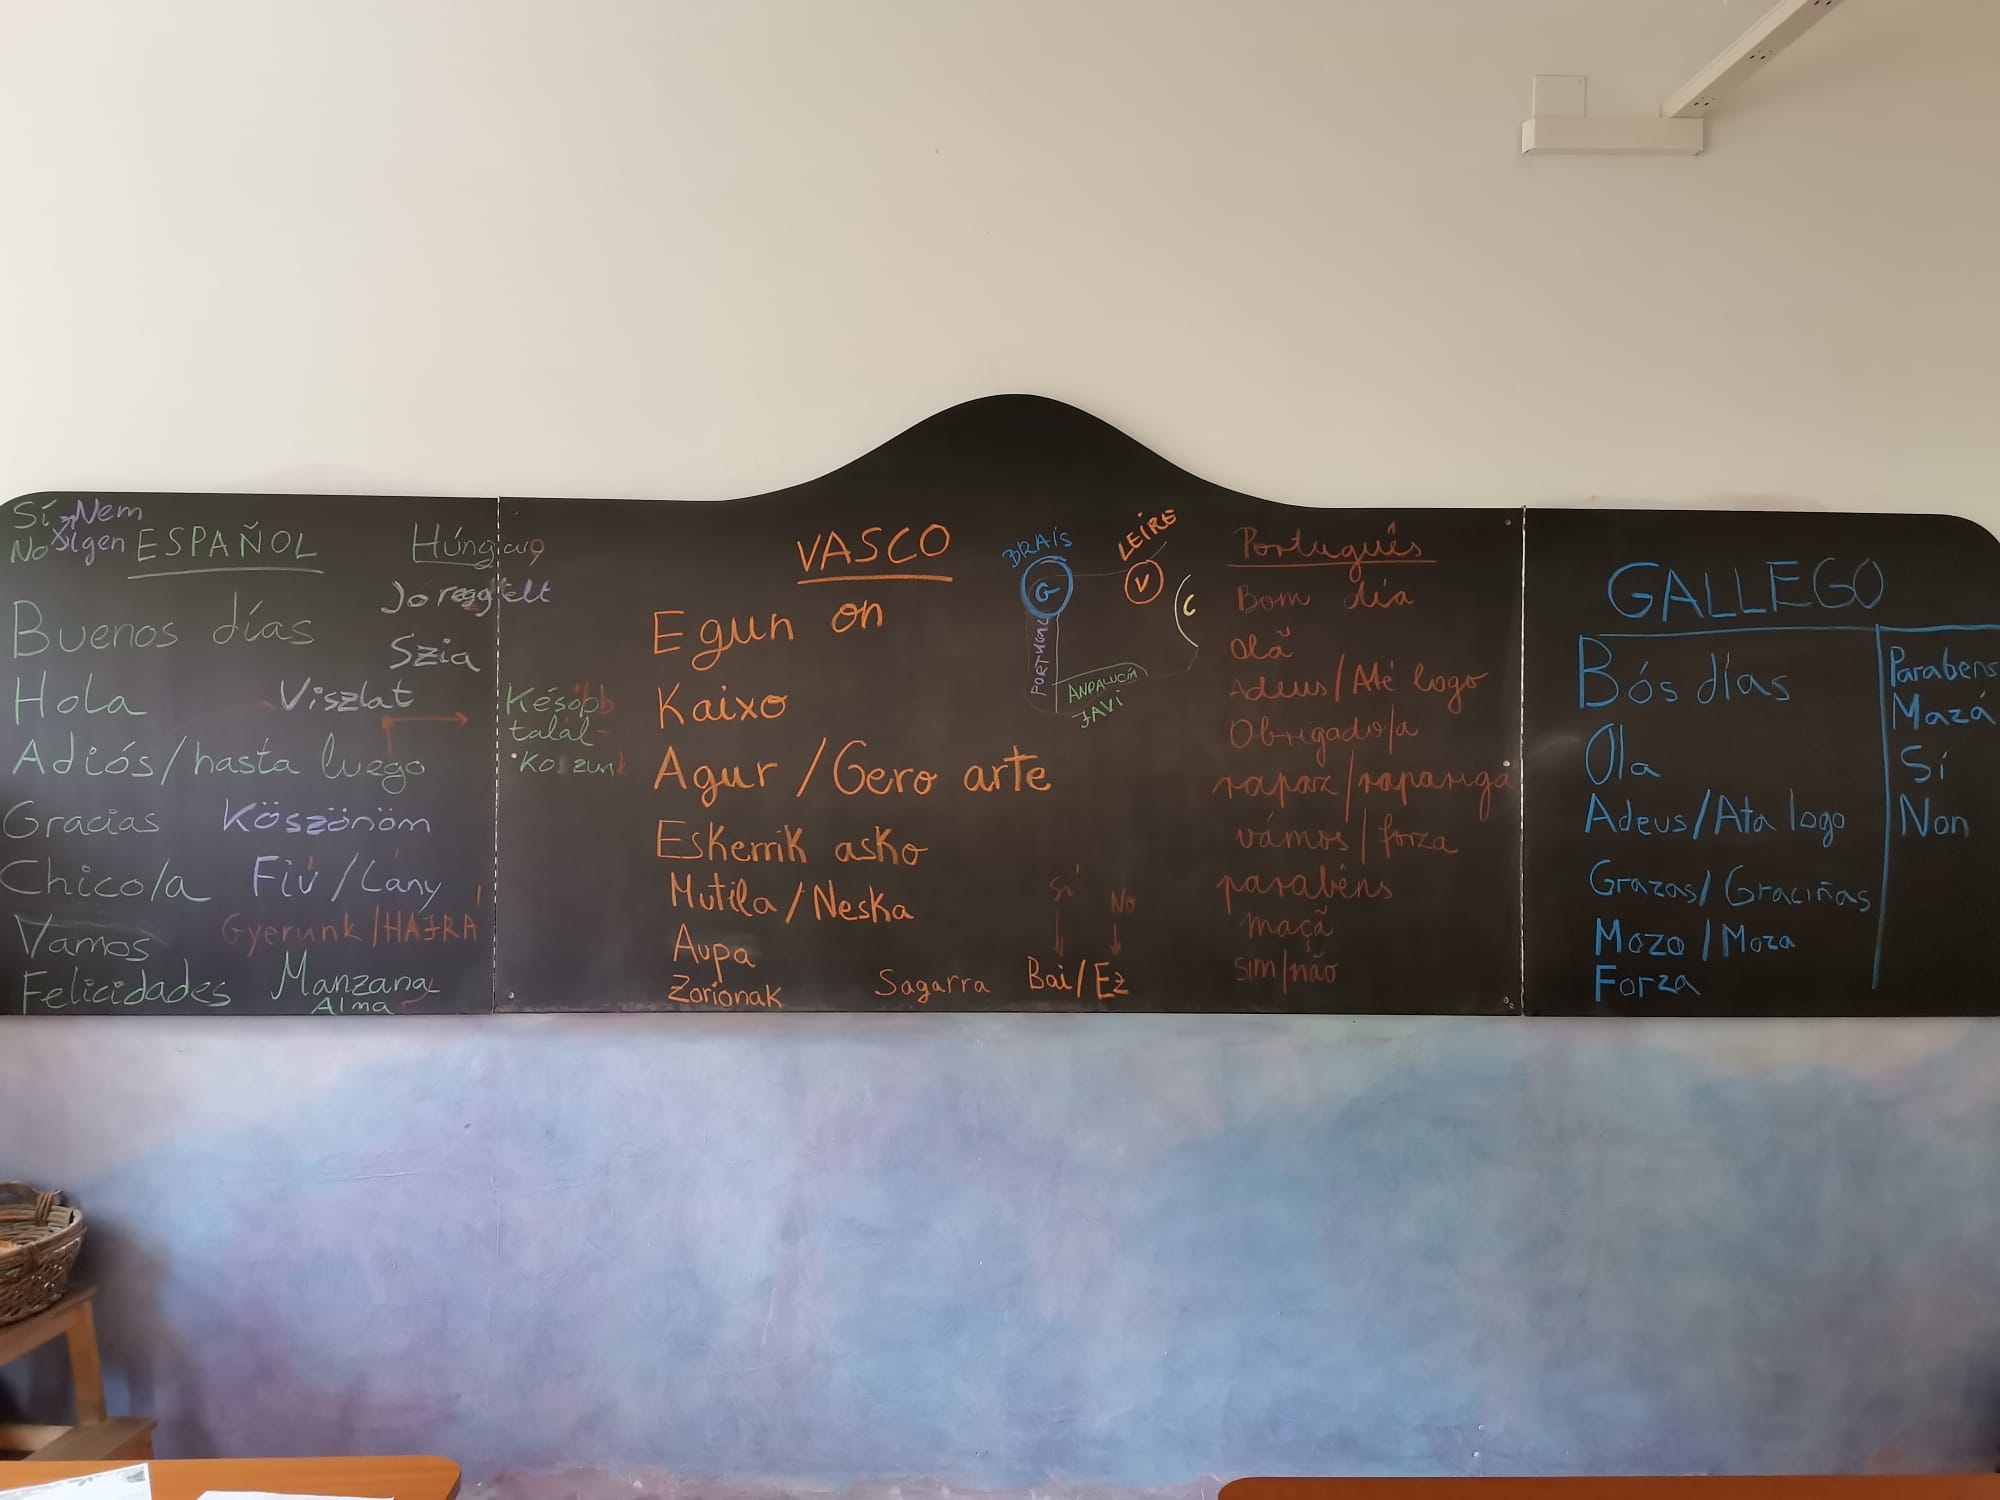 Sí Nem
No Igen
ESPAÑOL
Buenos días
Hola
Adiós/hasta luego
Gracias
Chico/a
Vamos
Felicidades
Jó reggelt
Szia
Viszlat
Köszönöm
Fiú/Lány
Gyerunk/HAJRÁ
Manzana
Alma
Később
talál-
Kozunk
VASCO
Egun on
Kaixo
Agur/Gero arte
Eskerrik asko
Mutila/Neska
Aupa
Zorionak
Sagarra
Sí No
Bai/Ez
BRAIS
G
LEIRE
V
C
PORTUGAL
ANDALUCÍA
JAVI
Português
Bom dia
Olã
Adeus/Até logo
Obrigado/a
rapaz/rapariga
vámos/forza
parabéns
maçã
sim/não
GALLEGO
Bós días
Ola
Adeus/Ata logo
Grazas/Graciñas
Mozo/Moza
Forza
Parabéns
Mazá
Sí
Non